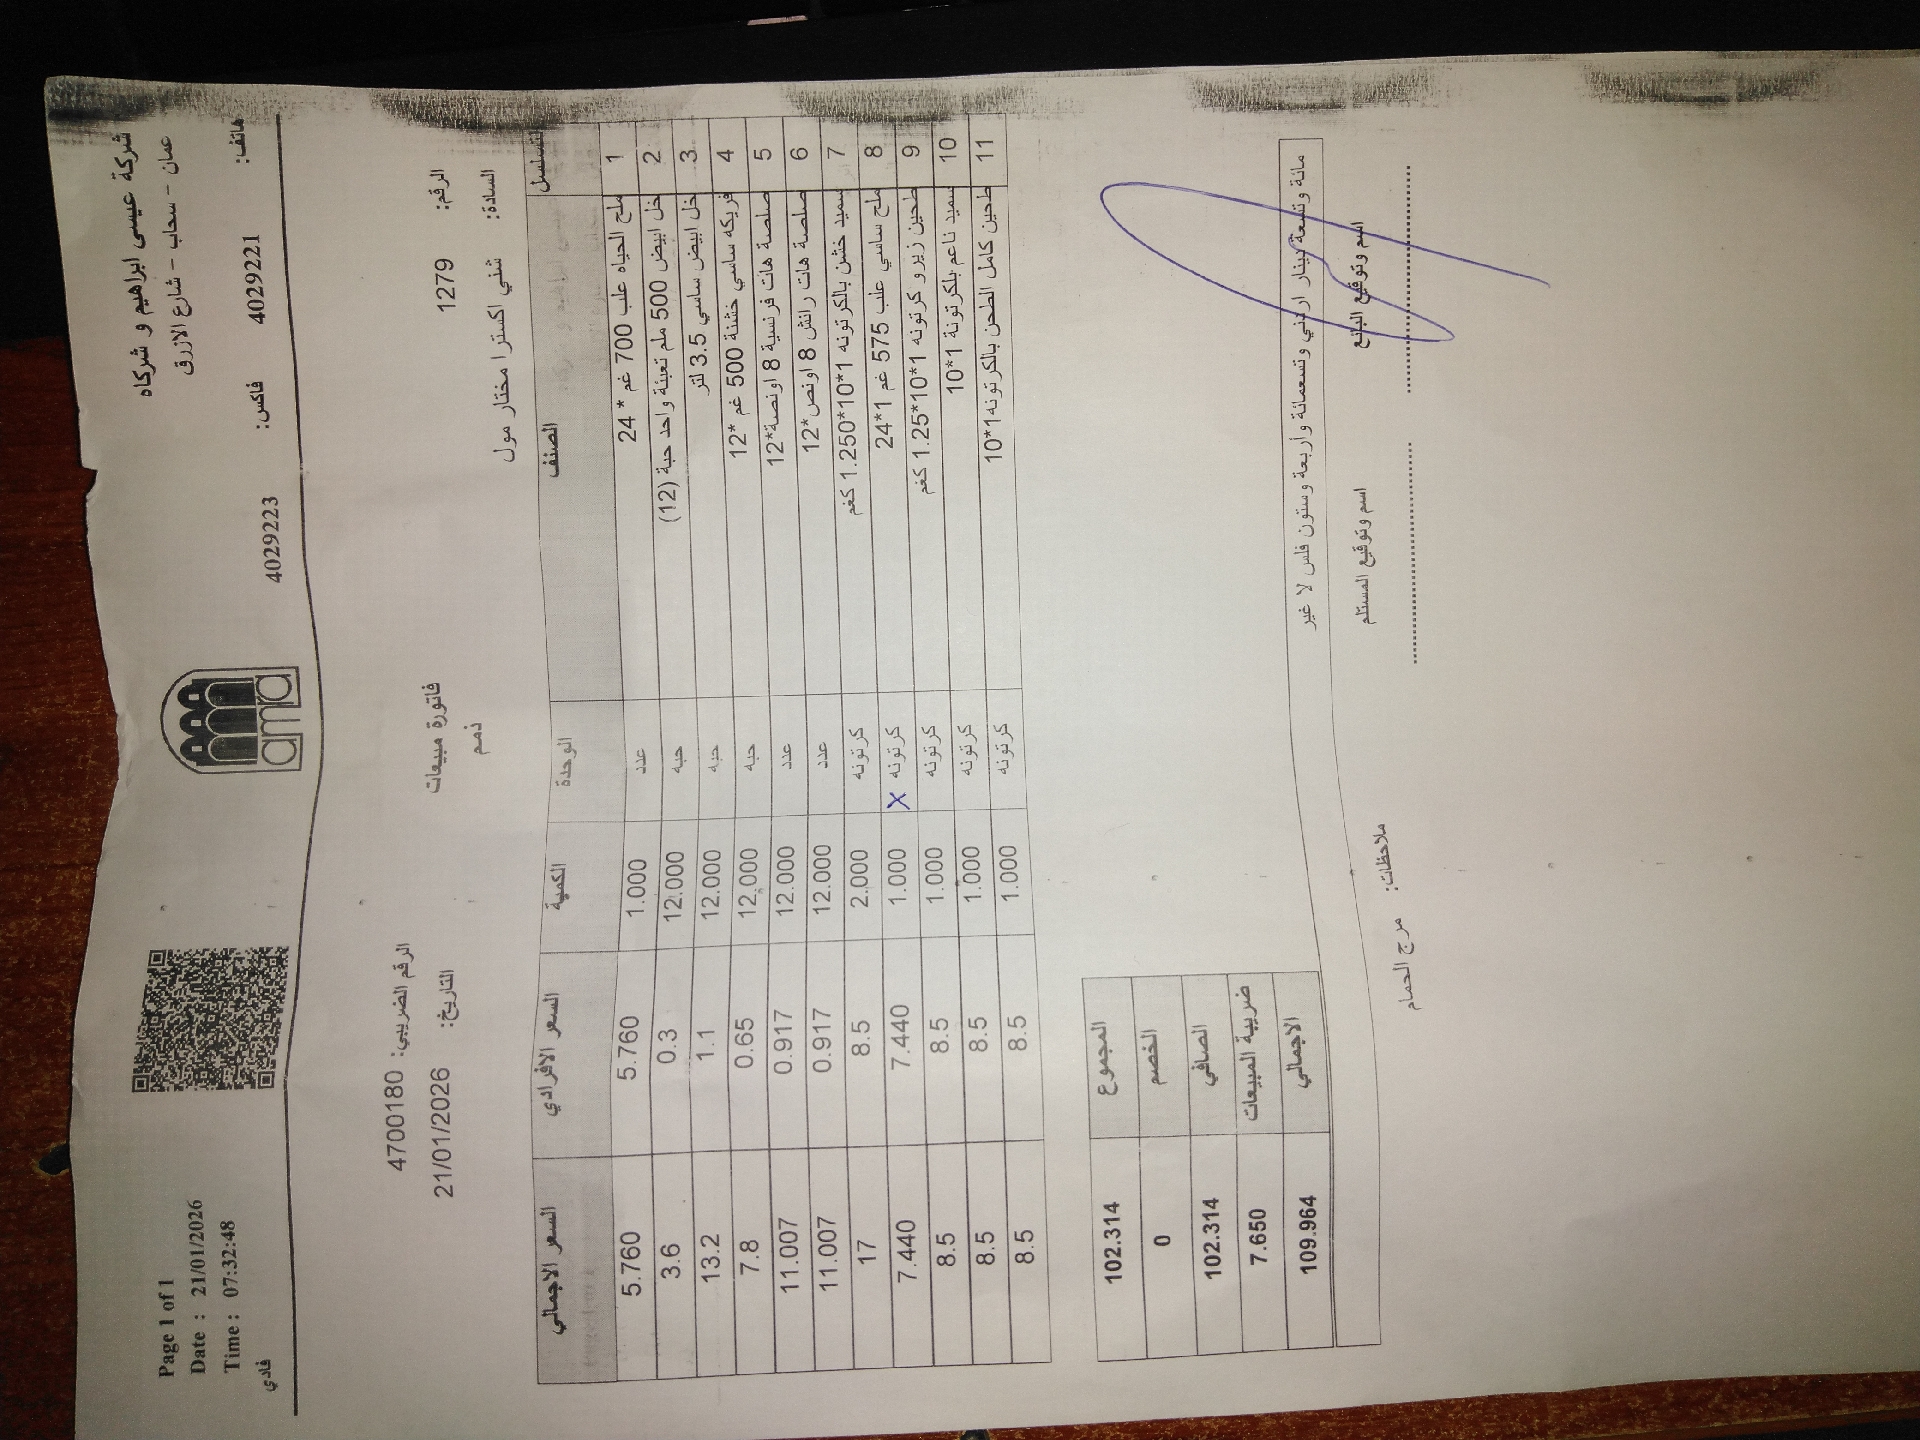 شركة عيسى ابراهيم و شركاه
عمان - سحاب - شارع الازرق
هاتف: 4029221 فاكس: 4029223
amra
Page 1 of 1
Date : 21/01/2026
Time : 07:32:48
فادي
فاتورة مبيعات
ذمم
الرقم الضريبي: 4700180
الرقم: 1279
التاريخ: 21/01/2026
السادة: شني اكسترا مختار مول
التسلسل الصنف الوحدة الكمية السعر الافرادي السعر الاجمالي
1 ملح الحياه علب 700 غم * 24 عدد 1.000 5.760 5.760
2 خل ابيض 500 ملم تعبئة واحد حبة (12) حبه 12.000 0.3 3.6
3 خل ابيض ساسي 3.5 لتر حبه 12.000 1.1 13.2
4 فريكه ساسي خشنة 500 غم *12 حبه 12.000 0.65 7.8
5 صلصة هات فرنسية 8 اونصة*12 عدد 12.000 0.917 11.007
6 صلصة هات رانش 8 اونص*12 عدد 12.000 0.917 11.007
7 سميد خشن بالكرتونه 1*10*1.250 كغم كرتونه 2.000 8.5 17
8 ملح ساسي علب 575 غم 1*24 كرتونه X 1.000 7.440 7.440
9 طحين زيرو كرتونه 1*10*1.25 كغم كرتونه 1.000 8.5 8.5
10 سميد ناعم بلكرتونة 1*10 كرتونه 1.000 8.5 8.5
11 طحين كامل الطحن بالكرتونه1*10 كرتونه 1.000 8.5 8.5
المجموع 102.314
الخصم 0
الصافي 102.314
ضريبة المبيعات 7.650
الاجمالي 109.964
مائة وتسعة دينار اردني وتسعمائة واربعة وستون فلس لا غير
اسم وتوقيع البائع اسم وتوقيع المستلم
ملاحظات: مرج الحمام